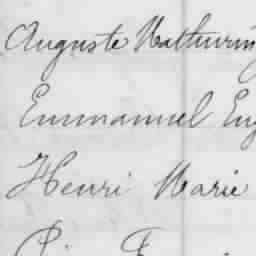 Auguste Mathurin
Emmanuel Eug
Henri Marie